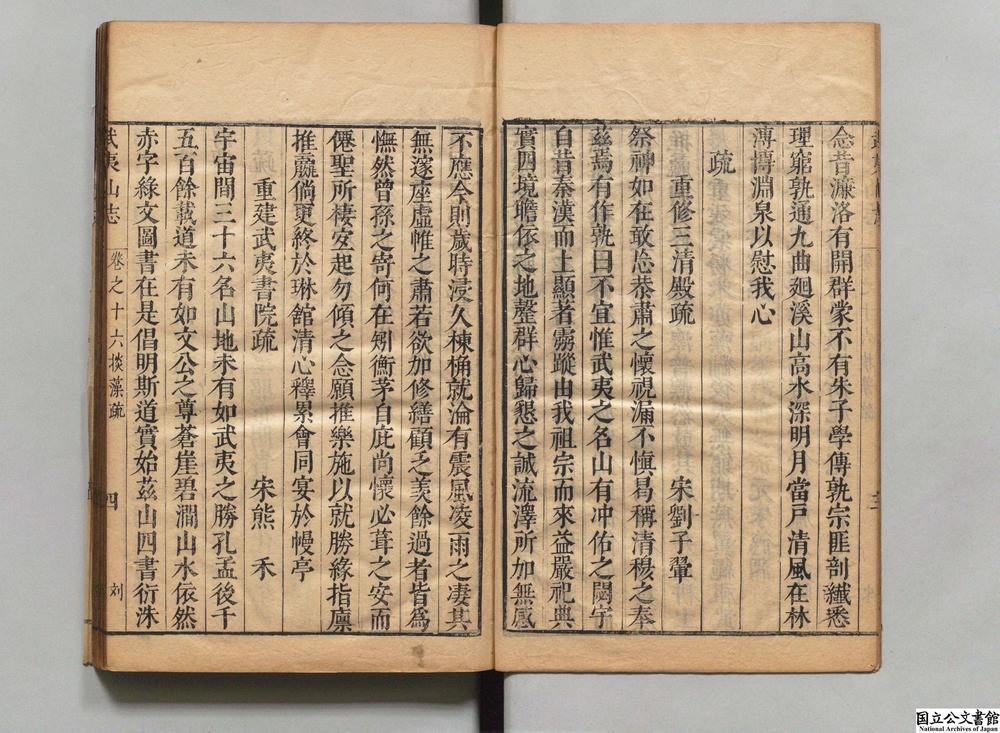 念昔濂洛有開群蒙不有朱子學傳孰宗匪剖纖悉
理窮孰通九曲廻溪山高水深明月當戶清風在林
溥博淵泉以慰我心
疏
重修三清殿疏 宋劉子翬
祭神如在敢忘恭肅之懷視漏不愼曷稱清穆之奉
茲焉有作孰曰不宜惟武夷之名山有冲佑之閟宇
自昔秦漢而上顯著靈蹤由我祖宗而來益嚴祀典
實四境瞻依之地罄群心歸懇之誠流澤所加無感
不應今則歲時浸久棟桷就淪有震風凌雨之凄其
無邃座虛帷之肅若欲加修繕顧乏羡餘過者皆爲
憮然曾孫之寄何在矧衡茅自庇尚懷必葺之安而
僊聖所棲安起勿傾之念願推樂施以就勝緣指廩
推贏倘更終於琳館清心釋累會同宴於幔亭
重建武夷書院疏 宋熊禾
宇宙間三十六名山地未有如武夷之勝孔孟後千
五百餘載道未有如文公之尊蒼崖碧澗山水依然
赤字綠文圖書在是倡明斯道實始茲山四書衍洙
武夷山志 卷之十六掞藻疏 四 刘
国立公文書館
National Archives of Japan